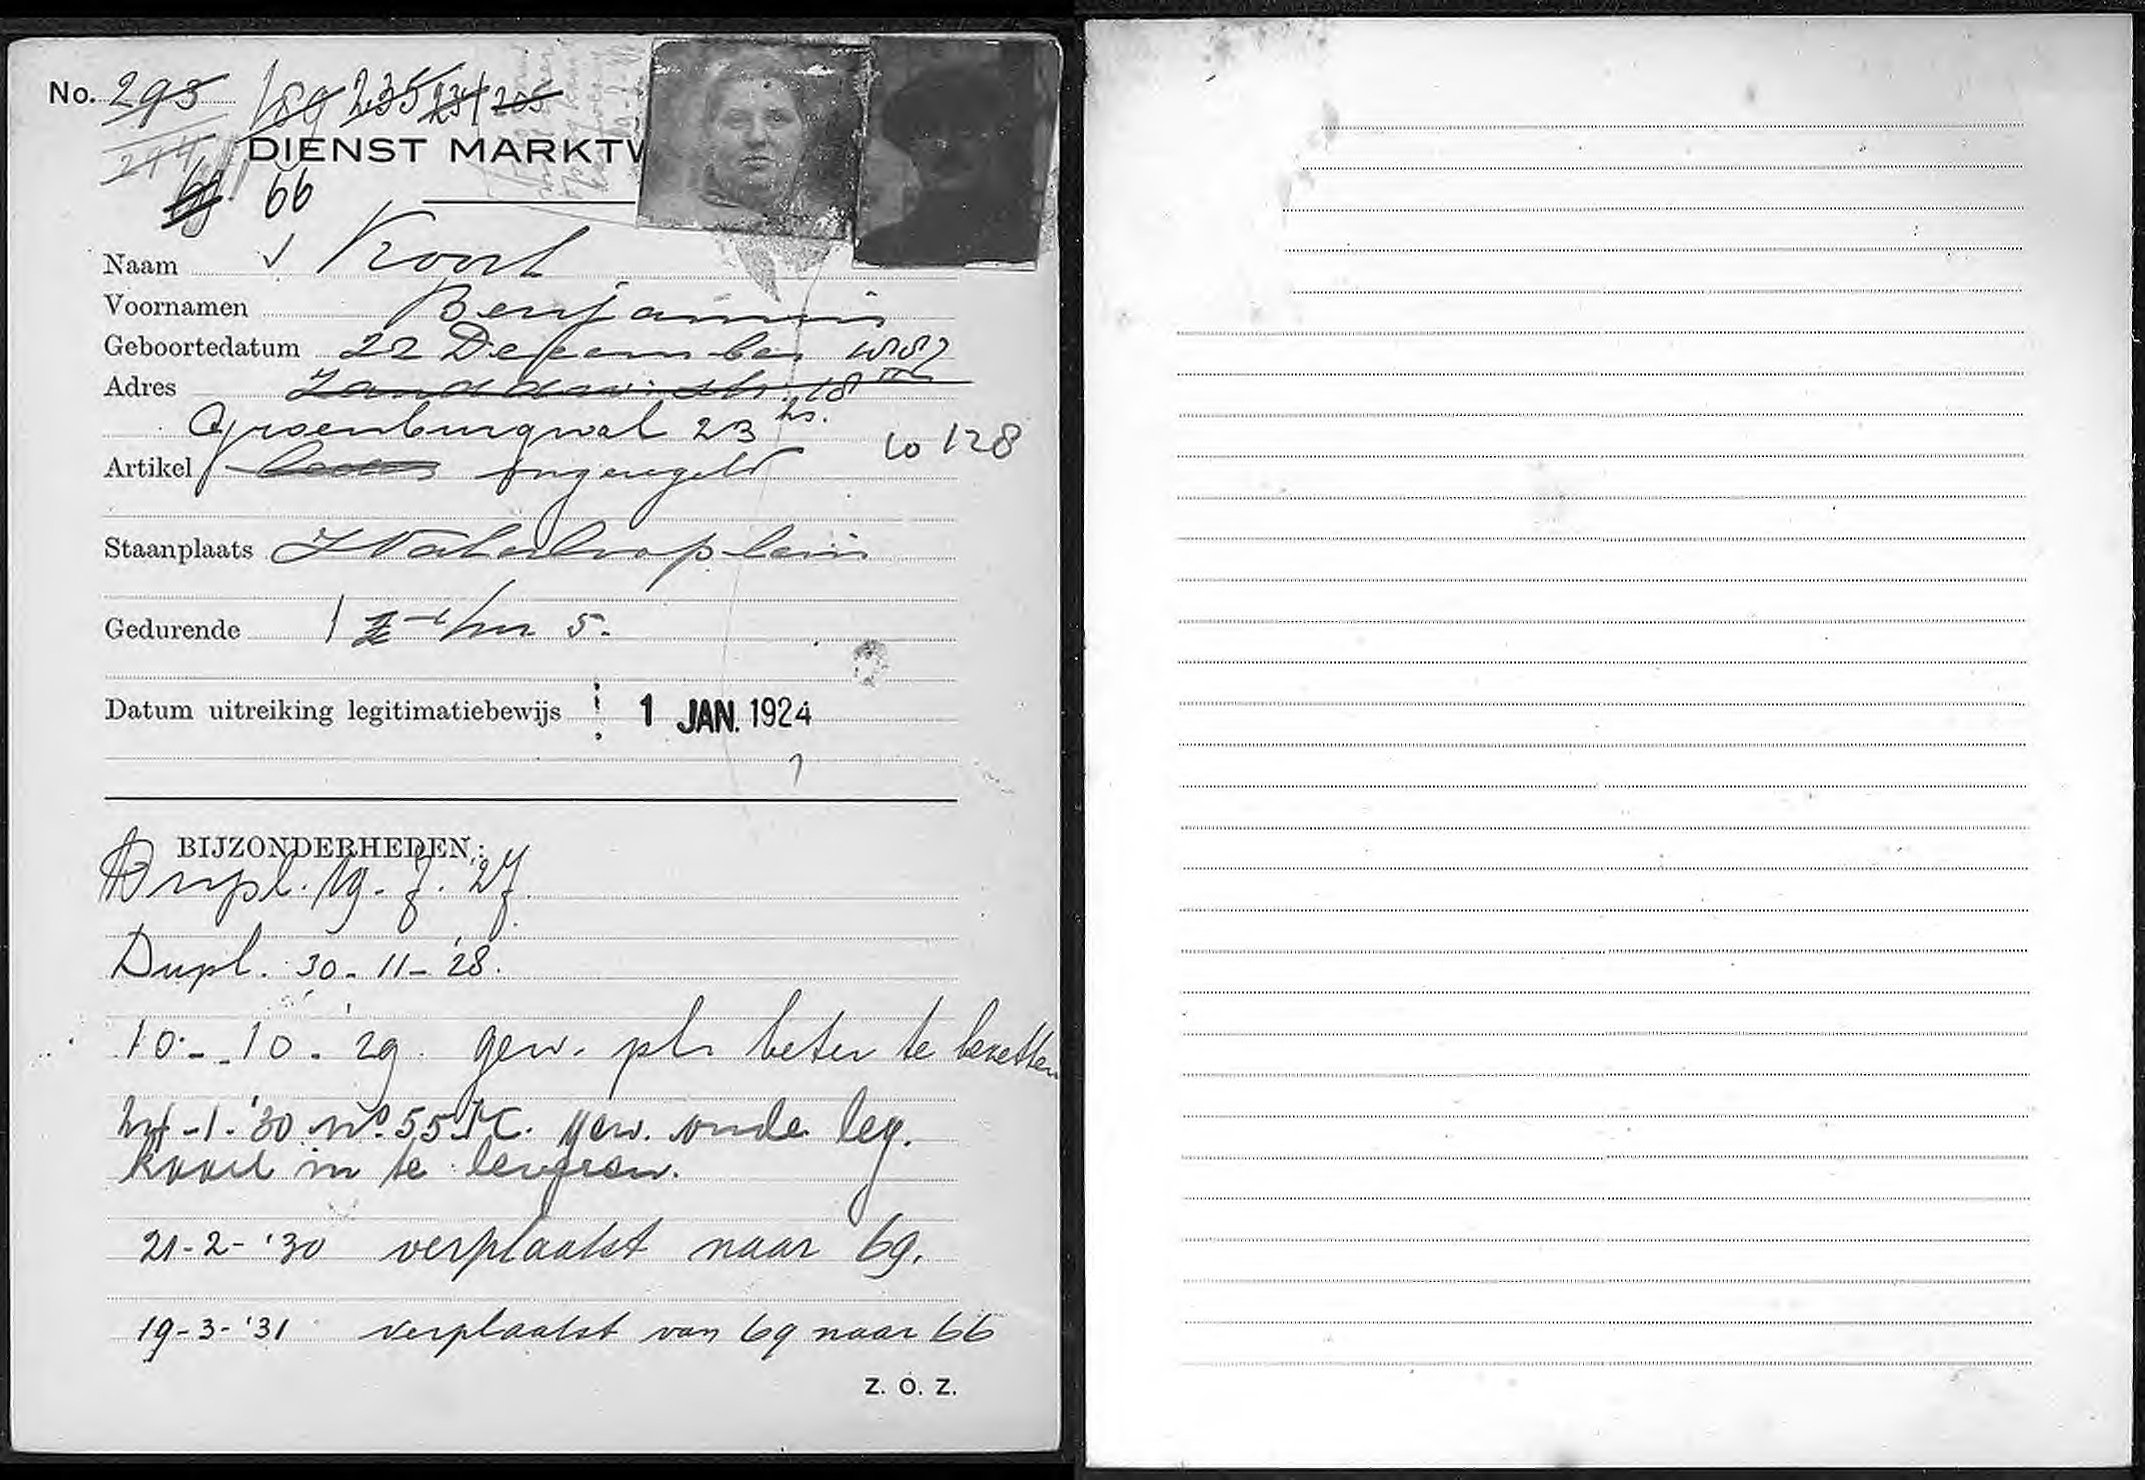 No. 295 189 235 231 205
DIENST MARKTW
69 66
Naam √ Koort
Voornamen Benjamin
Geboortedatum 22 December 1887
Adres Zanddwarsstr. 18
Groenburgwal 23 hs.
10 128
Artikel ongeregeld
Staanplaats Waterlooplein
Gedurende 1 t/m 5.
Datum uitreiking legitimatiebewijs 1 JAN. 1924
BIJZONDERHEDEN:
Dupl. 19-7-'27.
Dupl. 30-11-'28.
10-10-'29. gew. pl. beter te bezetten
24-1-'30 no. 55 gew. oude leg.
kaart in te leveren.
21-2-'30 verplaatst naar 69.
19-3-'31 verplaatst van 69 naar 66
Z. O. Z.